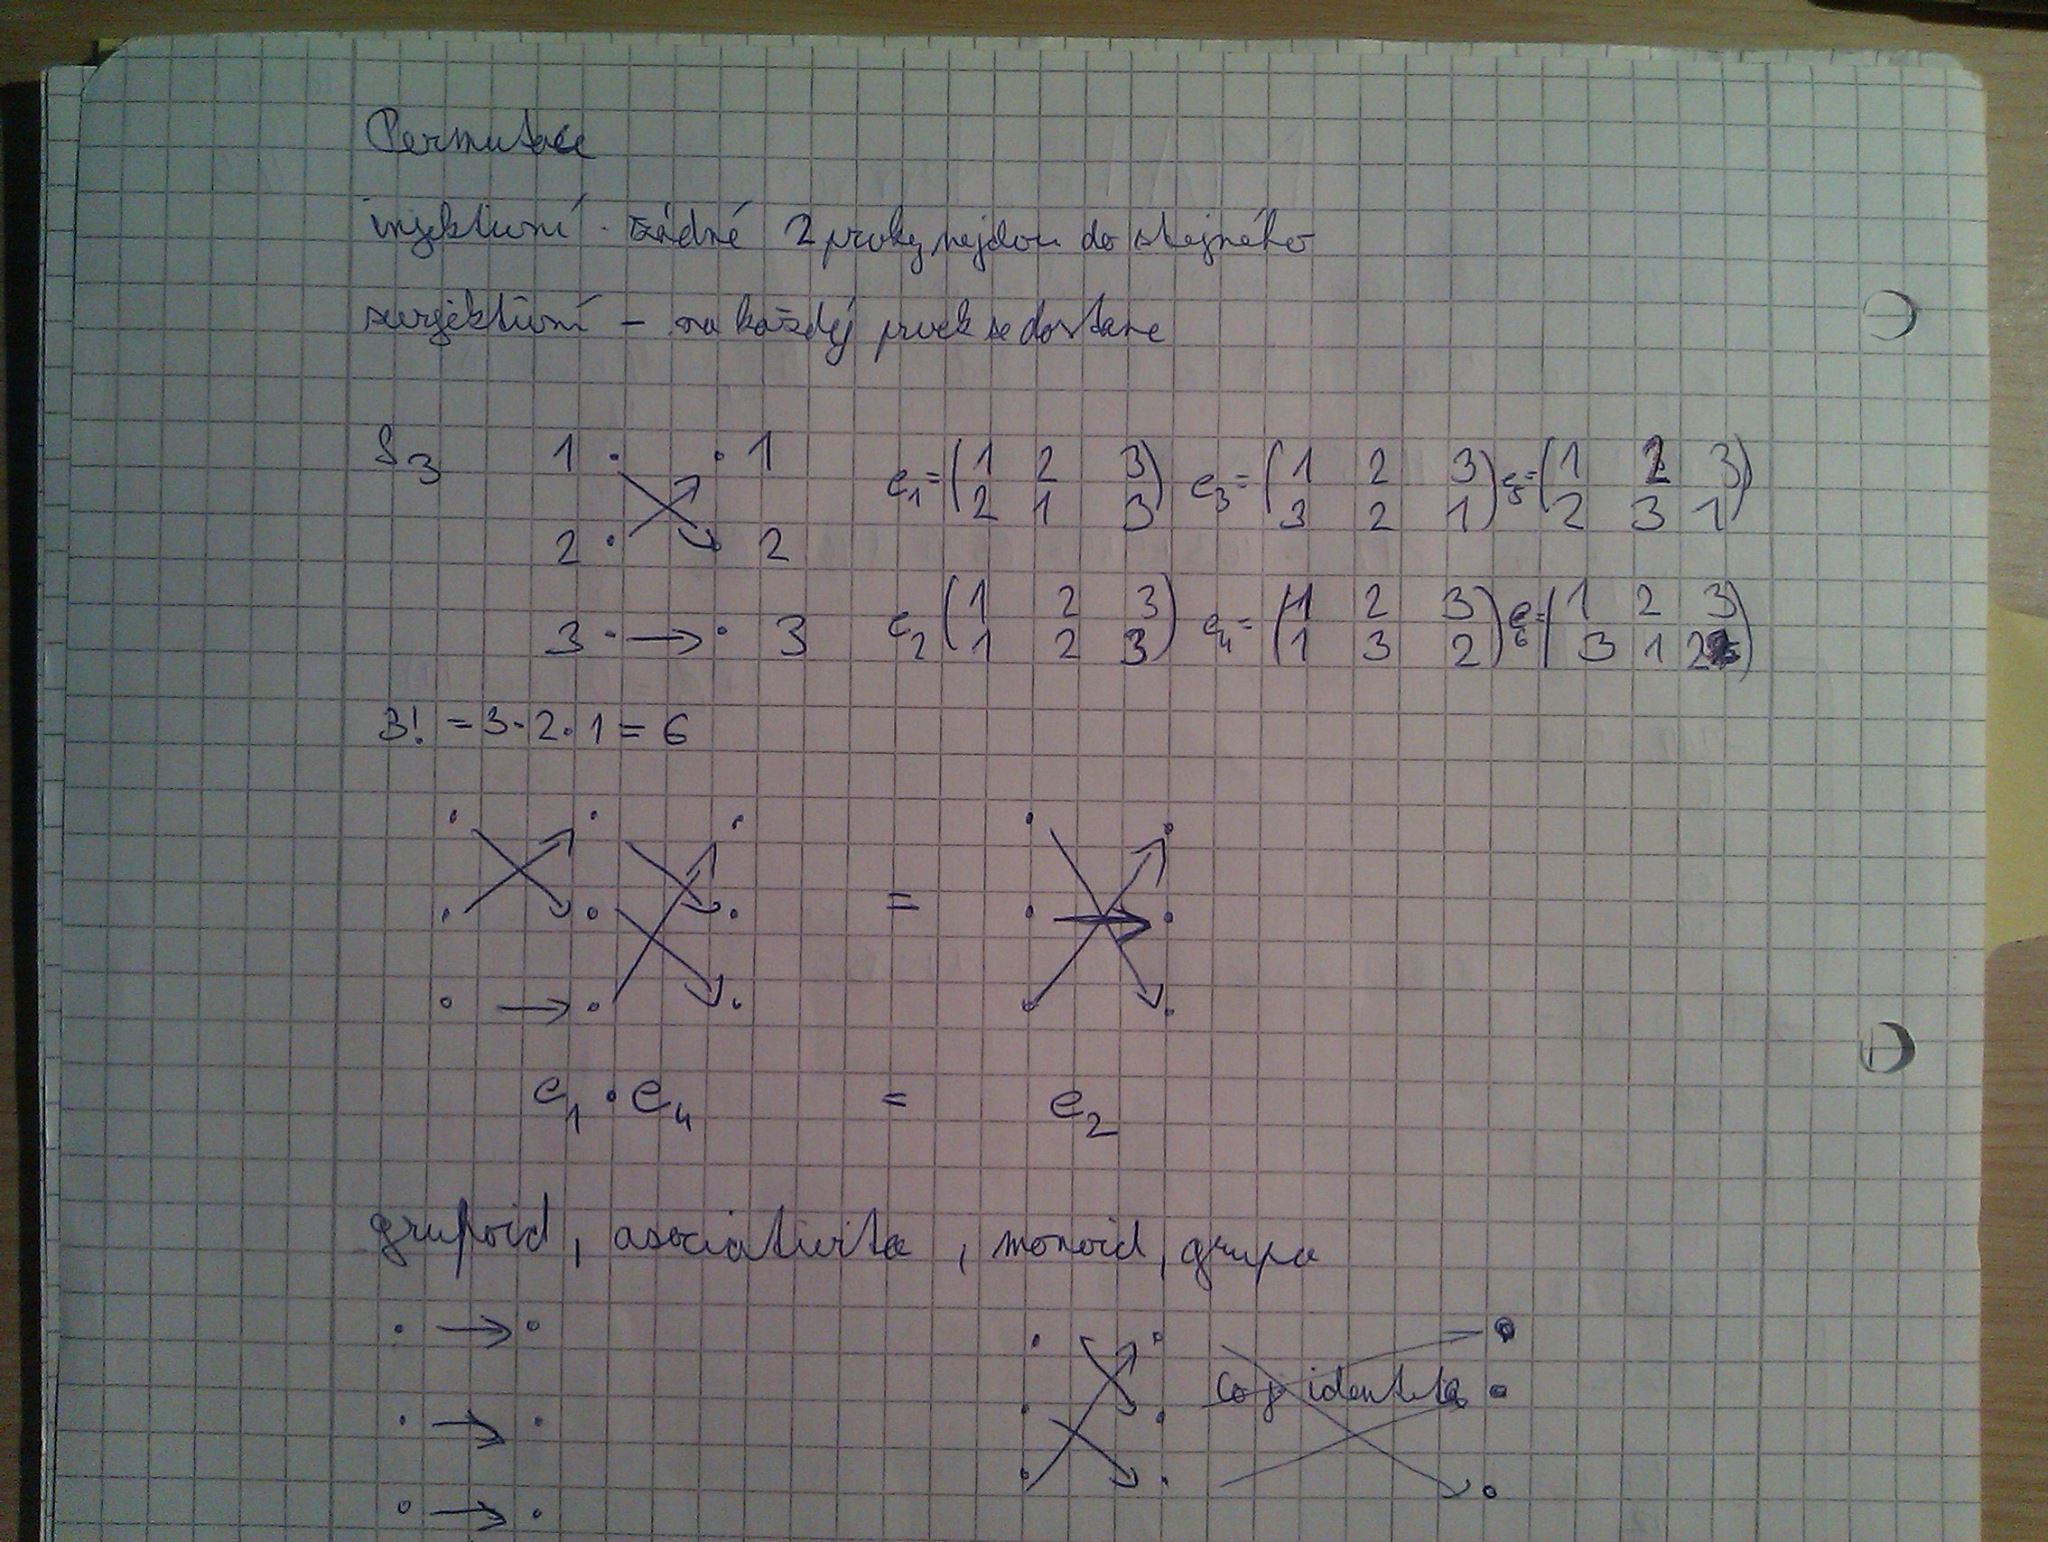 Permutace
injektivní - žádné 2 prvky nejdou do stejného
surjektivní - na každý prvek se dostane
S3 1 . . 1 e1 = (1 2 3) e3 = (1 2 3) e5 = (1 2 3)
(2 1 3) (3 2 1) (2 3 1)
2 . 2
e2 (1 2 3) e4 = (1 2 3) e6 = (1 2 3)
3 . → . 3 (1 2 3) (1 3 2) (3 1 2)
3! = 3 · 2 · 1 = 6
=
e1 · e4 = e2
grupoid, asociativita, monoid, grupa
co j identita